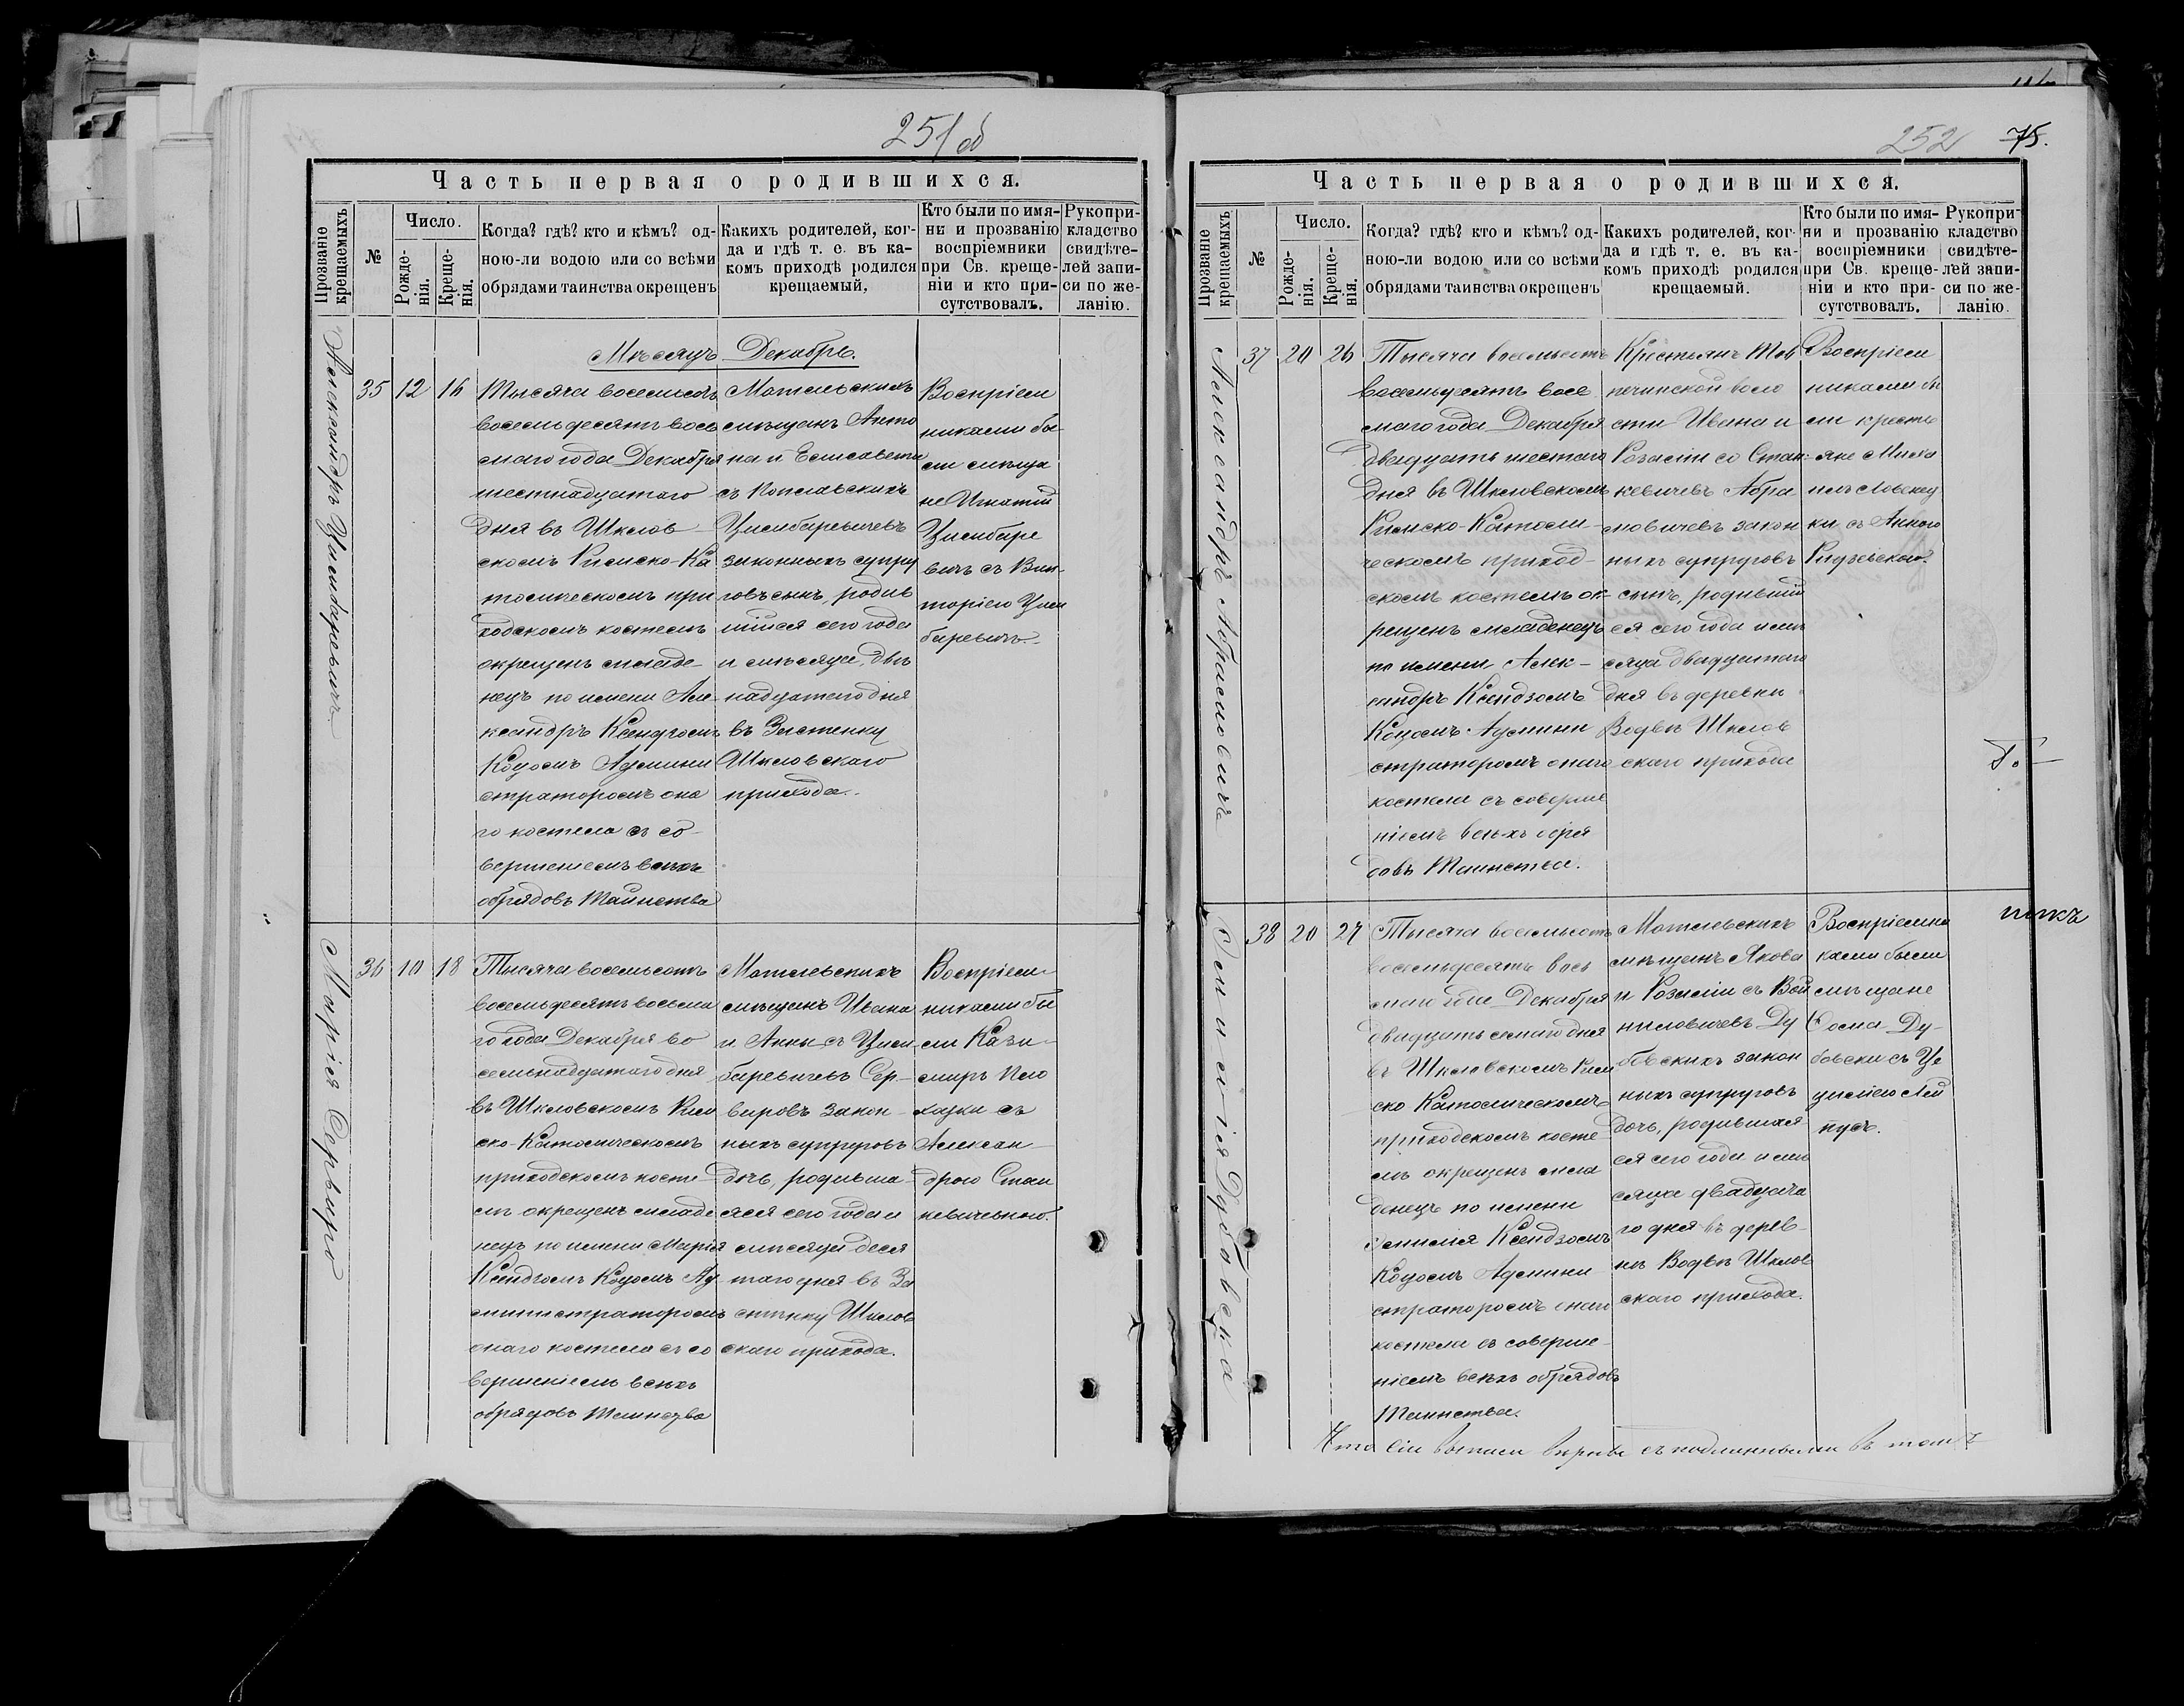 251об
Часть первая о родившихся.
Прозваніе крещаемыхъ
№
Число.
Рожде-
нія.
Креще-
нія.
Когда? гдѣ? кто и кѣмъ? од-
ною-ли водою или со всѣми
обрядами таинства окрещенъ
Какихъ родителей, ког-
да и гдѣ т. е. въ ка-
комъ приходѣ родился
крещаемый.
Кто были по имя-
ни и прозванію
воспріемники
при Св. креще-
ніи и кто при-
сутствовалъ.
Рукопри-
кладство
свидѣте-
лей запи-
си по же-
ланію.
Мѣсяцъ Декабрь.
Александръ Цимбаревичъ
35 12 16
Тысяча восемьсотъ
восемьдесятъ вось
маго года Декабря
шестнадцатаго
дня въ Шклов
скомъ Римско-Ка
толическомъ при
ходскомъ костелѣ
окрещенъ младе-
нецъ по имени Але
ксандръ Ксендзомъ
Коцомъ Админи
страторомъ она
го костела съ со-
вершеніемъ всѣхъ
обрядовъ Таинства
Могилевскихъ
мѣщанъ Анто
на и Елисаветы
съ Поплавскихъ
Цимбаревичевъ
законныхъ супру
говъ сынъ, родив
шійся сего года
и мѣсяца, двѣ
надцатаго дня
въ Застенку
Шкловскаго
прихода.
Воспріем
никами бы
ли мѣща
не Игнатій
Цимбаре
вичъ съ Вик-
торіею Цим
баревичъ.
Марія Сервиро
36 10 18
Тысяча восемьсотъ
восемьдесятъ восьма
го года Декабря во
семьнадцатаго дня
въ Шкловскомъ Рим
ско-Католическомъ
приходскомъ косте-
лѣ окрещенъ младе
нецъ по имени Марія
Ксендзомъ Коцомъ Ад
министраторомъ
онаго костела съ со
вершеніемъ всѣхъ
обрядовъ Таинства
Могилевскихъ
мѣщанъ Ивана
и Анны съ Цим
баревичевъ Сер-
вировъ закон-
ныхъ супруговъ
дочь, родивша-
яся сего года и
мѣсяца деся
таго дня въ За
стѣнку Шклов
скаго прихода.
Воспріем-
никами бы
ли Кази-
миръ
съ
Алексан-
дрою Стан
кевичевною.
252 75.
Часть первая о родившихся.
Прозваніе крещаемыхъ
№
Число.
Рожде-
нія.
Креще-
нія.
Когда? гдѣ? кто и кѣмъ? од-
ною-ли водою или со всѣми
обрядами таинства окрещенъ
Какихъ родителей, ког-
да и гдѣ т. е. въ ка-
комъ приходѣ родился
крещаемый.
Кто были по имя-
ни и прозванію
воспріемники
при Св. креще-
ніи и кто при-
сутствовалъ.
Рукопри-
кладство
свидѣте-
лей запи-
си по же-
ланію.
Александръ Абрамовичъ
37 20 26
Тысяча восемьсотъ
восемьдесятъ вось
маго года Декабря
двадцать шестаго
дня въ Шкловскомъ
Римско-Католи-
ческомъ приход-
скомъ костелѣ ок-
рещенъ младенецъ
по имени Алек-
сандръ Ксендзомъ
Коцомъ Админи
страторомъ онаго
костела съ соверше
ніемъ всѣхъ обря
довъ Таинства.
Крестьянъ Тов
печинской воло
сти Ивана и
Розаліи со Стан-
кевичевъ Абра
мовичевъ закон
ныхъ супруговъ
сынъ, родившій
ся сего года и мѣ
сяца двадцатаго
дня въ деревни
Водвѣ Шклов
скаго прихода
Воспріем
никами бы
ли кресть
яне Миха
илъ
ки съ Анною
Т.
Эмилія Дубовска
38 20 27
Тысяча восемьсотъ
восемьдесятъ вось
маго года Декабря
двадцать семаго дня
въ Шкловскомъ Рим
ско Католическомъ
приходскомъ косте
лѣ окрещенъ мла
денецъ по имени
Эмилія Ксендзомъ
Коцомъ Админи
страторомъ онаго
костела съ соверше-
ніемъ всѣхъ обрядовъ
Таинства.
Могилевскихъ
мѣщанъ Якова
и Розаліи съ Вой
ниловичевъ Ду
бовскихъ закон
ныхъ супруговъ
дочь, родившая
ся сего года и мѣ
сяца двадцата
го дня въ дерев-
нѣ Водвѣ Шклов
скаго прихода.
Воспріемни
ками были
мѣщане
Ѳома Ду-
бовски съ Це
циліею
Что сіи выписи вѣрны съ подлинными въ томъ